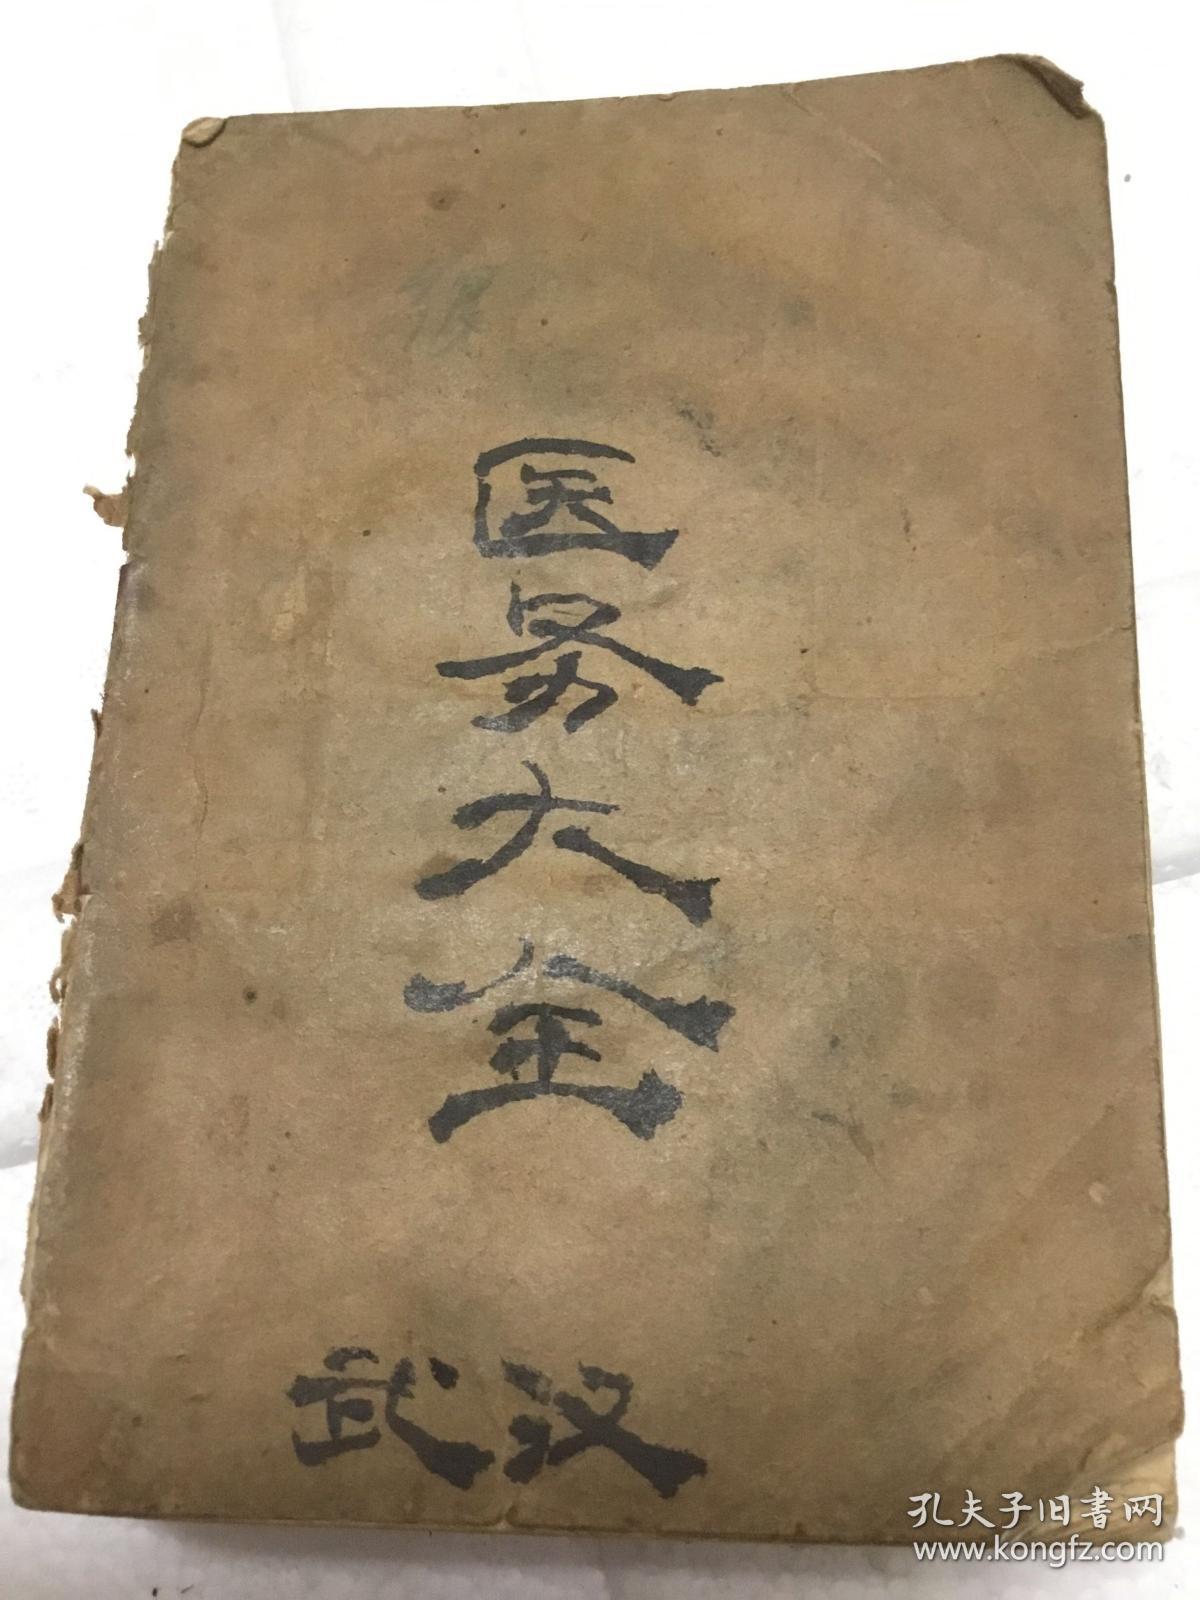 医务大全
武汉
孔夫子旧書网
www.kongfz.com